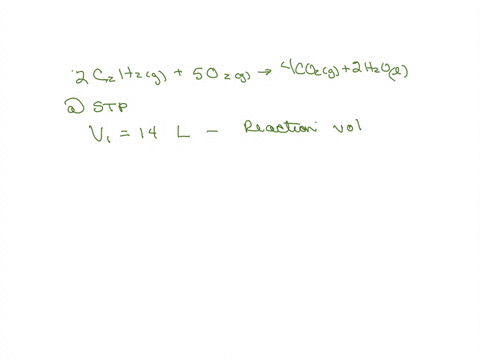 2 C₂H₂(g) + 5O₂(g) → 4CO₂(g) + 2H₂O(l)
a) STP
V₁ = 14 L - Reaction vol